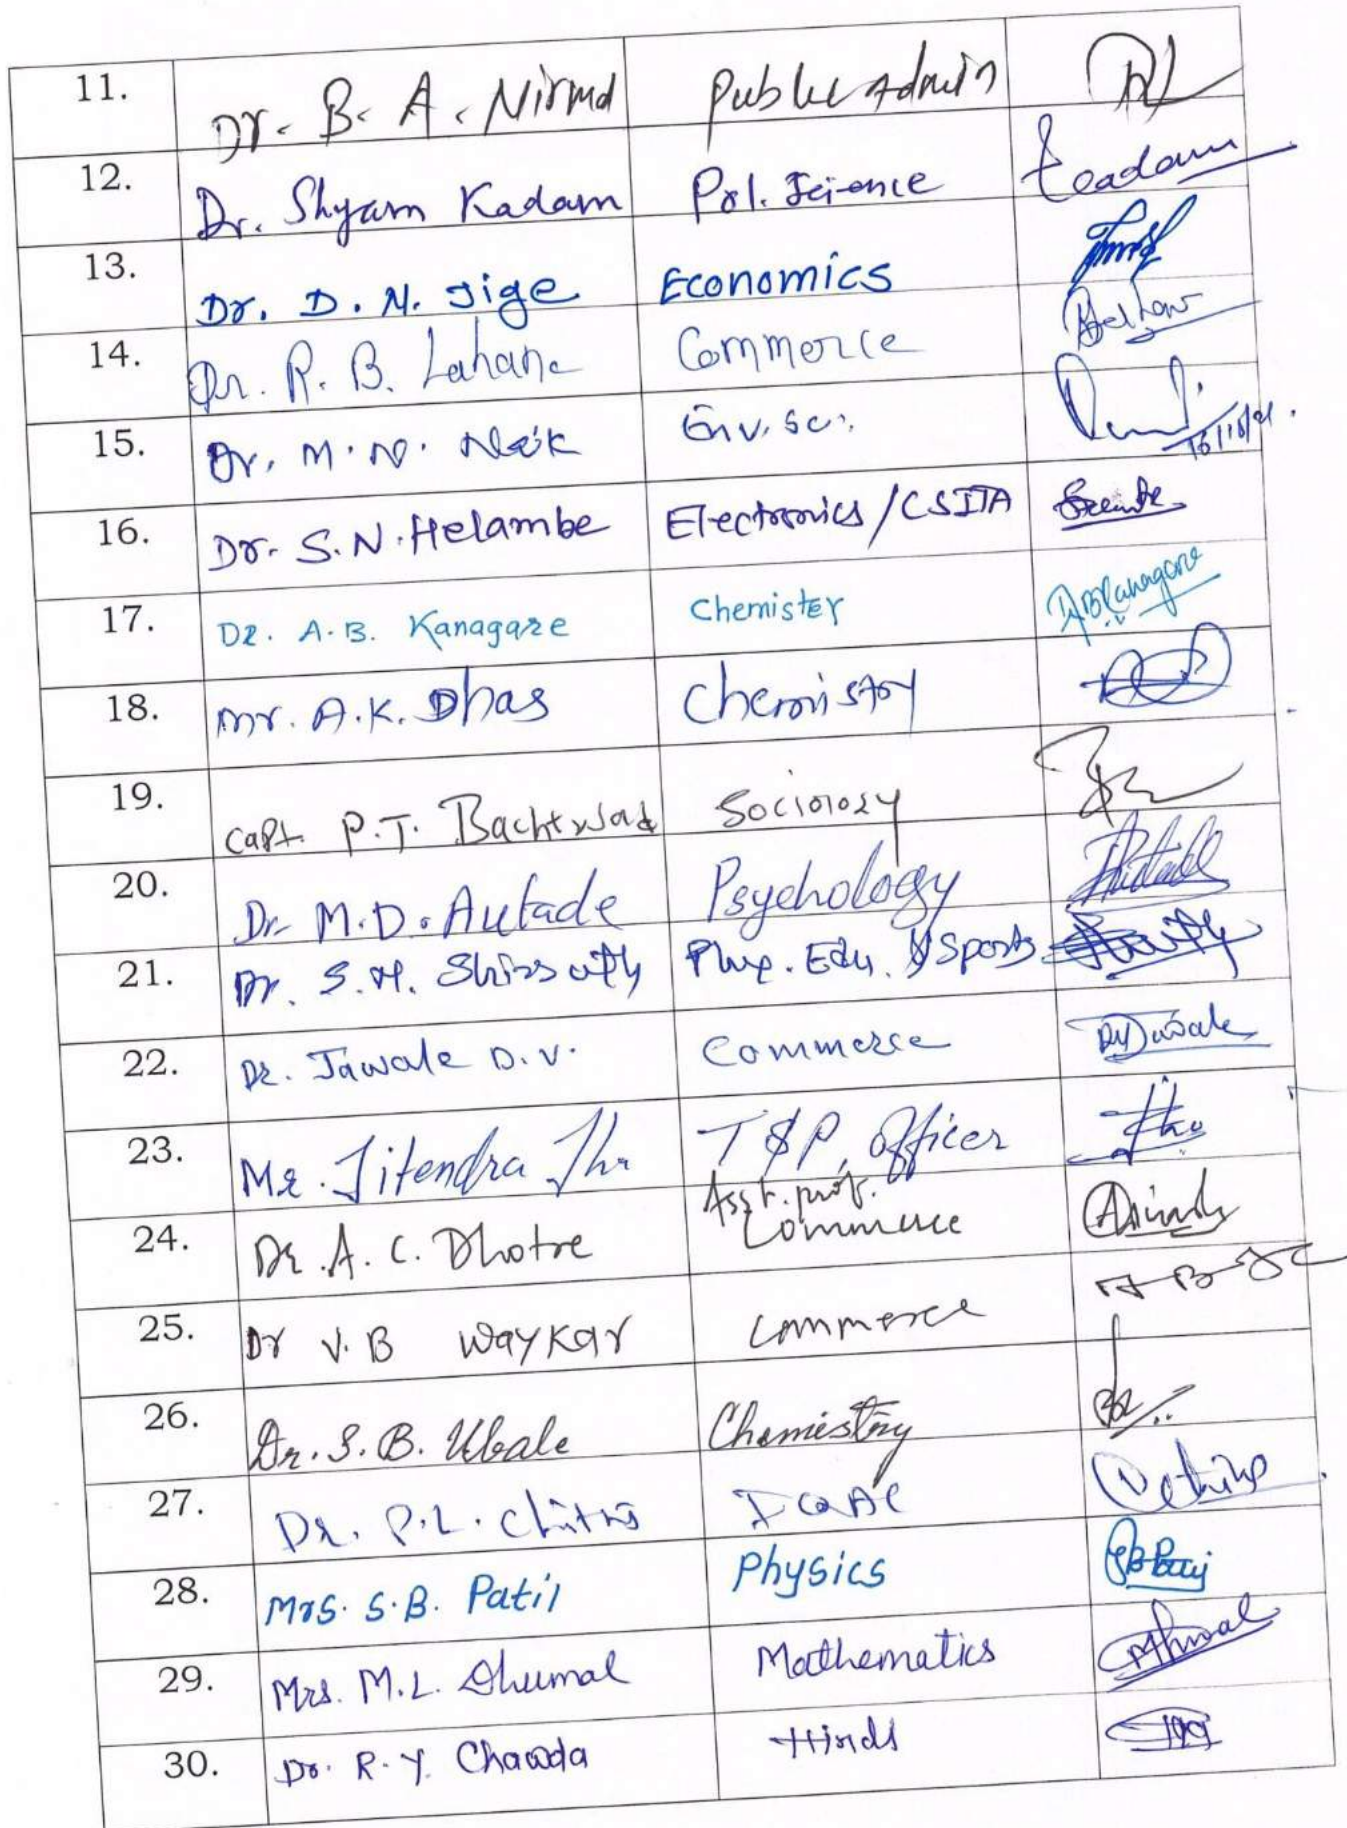 11. Dr. B. A. Nirmal Public Admin
12. Dr. Shyam Kadam Pol. Science
13. Dr. D. N. Jige Economics
14. Dr. R. B. Lahane Commerce
15. Dr. M. N. Naik Env. Sci.
16. Dr. S. N. Helambe Electronics / CSITA
17. Dr. A. B. Kanagare Chemistey ABKanagare
18. Mr. A. K. Dhas Chemistry
19. Capt. P. T. Sociology
20. Dr. M. D. Autade Psychology
21. Dr. S. H. Phy. Edu. & Sports
22. Dr. Jawale D. V. Commerce DVJawale
23. Mr. Jitendra Jha T & P, officer
24. Dr. A. C. Dhotre Asst. prof. Commerce
25. Dr V. B Waykar Commerce
26. Dr. S. B. Ubale Chemistry
27. Dr. P. L. IQAC
28. Mrs. S. B. Patil Physics
29. Mrs. M. L. Dhumal Mathematics
30. Dr. R. Y. Chavda Hindi